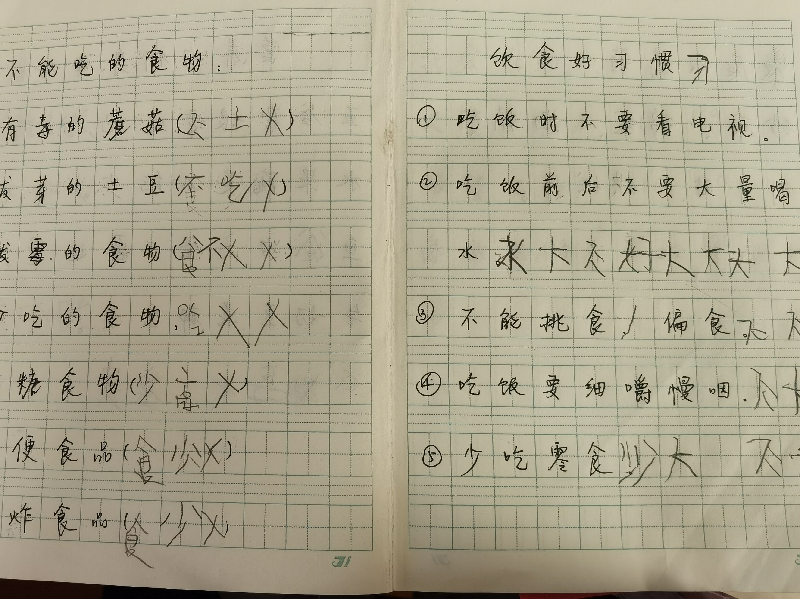 不能吃的食物:
有毒的蘑菇(不土乂)
芽的土豆(不吃乂)
霉的食物(食不乂乂)
吃的食物.吃乂乂
糖食物(少言乂)
便食品(食少乂)
炸食品(食少乂)
饮食好习惯习
①吃饭时不要看电视。
②吃饭前后不要大量喝
水水大不好大大大大
③不能挑食,偏食.不
④吃饭要细嚼慢咽.不
⑤少吃零食少大 不